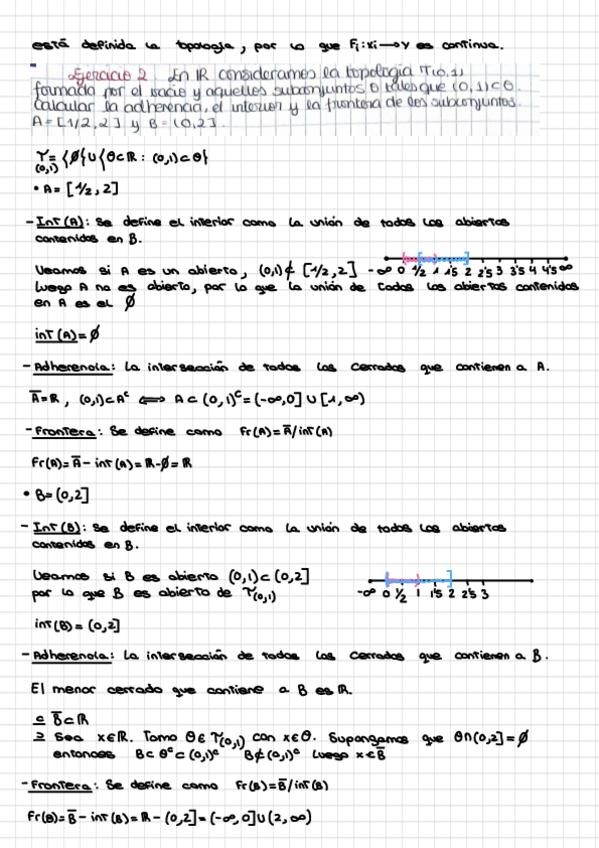 está definida la topología, por lo que Fi:Xi→Y es continua.
Ejercicio 2. En IR consideramos la topología T(0,1)
formada por el vacío y aquellos subconjuntos O tales que (0,1)⊂O.
Calcular la adherencia, el interior y la frontera de los subconjuntos
A=[1/2,2] y B=(0,2].
T(0,1)={∅}∪{Θ⊂R: (0,1)⊂Θ}
• A= [1/2,2]
- Int(A): Se define el interior como la unión de todos los abiertos
contenidos en B.
Veamos si A es un abierto, (0,1)⊄[1/2,2]
-∞ 0 1/2 1 1'5 2 2'5 3 3'5 4 4'5 ∞
luego A no es abierto, por lo que la unión de todos los abiertos contenidos
en A es el ∅
int(A)=∅
- Adherencia: La intersección de todos los cerrados que contienen a A.
A̅=R, (0,1)⊂Aᶜ ⟺ A⊂(0,1)ᶜ=(-∞,0]∪[1,∞)
- Frontera: Se define como Fr(A)=A̅/int(A)
Fr(A)=A̅-int(A)=R-∅=R
• B=(0,2]
- Int(B): Se define el interior como la unión de todos los abiertos
contenidos en B.
Veamos si B es abierto (0,1)⊂(0,2]
por lo que B es abierto de T(0,1)
-∞ 0 1/2 1 1'5 2 2'5 3
int(B)=(0,2]
- Adherencia: La intersección de todos los cerrados que contienen a B.
El menor cerrado que contiene a B es R.
⊆ B̅⊂R
⊇ Sea x∈R. Tomo Θ∈T(0,1) con x∈Θ. Supongamos que Θ∩(0,2]=∅
entonces B⊂Θᶜ⊂(0,1)ᶜ B⊄(0,1)ᶜ luego x∈B̅
- Frontera: Se define como Fr(B)=B̅/int(B)
Fr(B)=B̅-int(B)=R-(0,2]=(-∞,0]∪(2,∞)